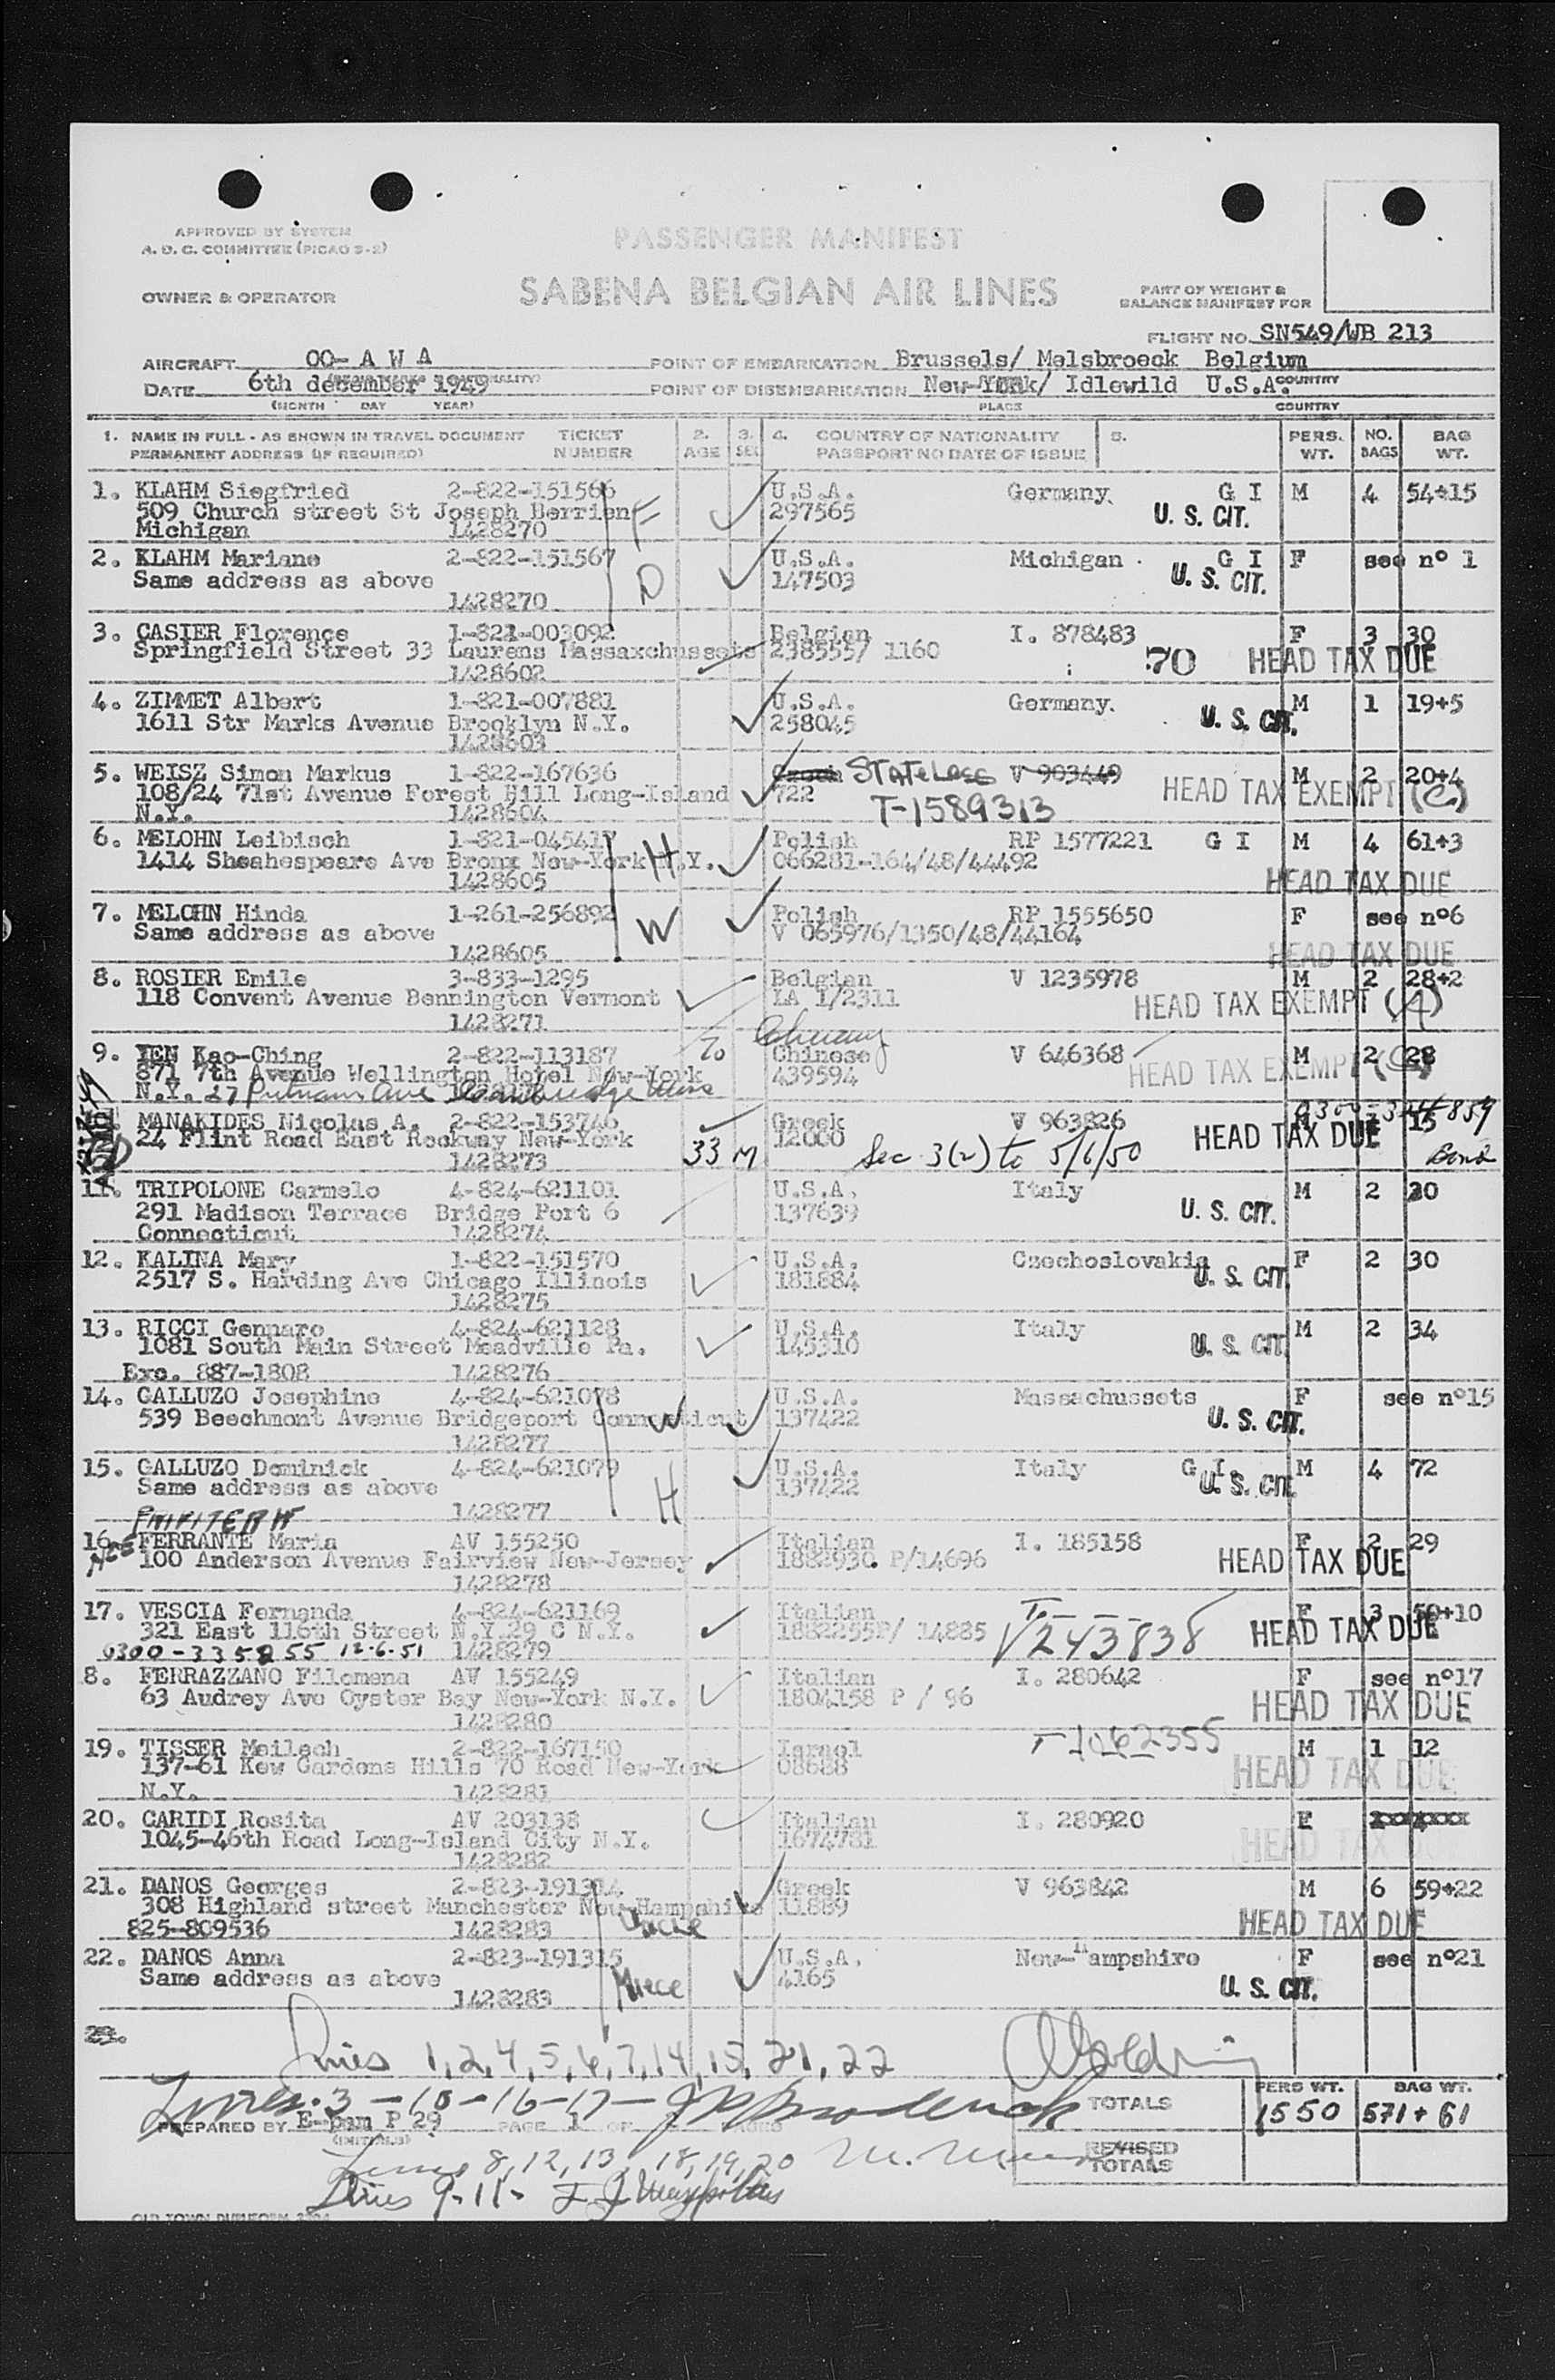 APPROVED BY SYSTEM
A. D. C. COMMITTEE (PICAO S-2)
PASSENGER MANIFEST
OWNER & OPERATOR
SABENA BELGIAN AIR LINES
PART OF WEIGHT &
BALANCE MANIFEST FOR
FLIGHT NO. SN549/WB 213
AIRCRAFT OO- A W A POINT OF EMBARKATION Brussels/ Melsbroeck Belgium
DATE 6th december 1949 POINT OF DISEMBARKATION New-York/ Idlewild U.S.A. COUNTRY
(MONTH DAY YEAR) PLACE COUNTRY
1. NAME IN FULL - AS SHOWN IN TRAVEL DOCUMENT TICKET 2. 3. 4. COUNTRY OF NATIONALITY 5. PERS. NO. BAG
PERMANENT ADDRESS (IF REQUIRED) NUMBER AGE SEX PASSPORT NO DATE OF ISSUE WT. BAGS WT.
1. KLAHM Siegfried 2-822-151566 U.S.A. Germany G I M 4 54+15
509 Church street St Joseph Berrien F 297565 U. S. CIT.
Michigan 1428270
2. KLAHM Mariane 2-822-151567 U.S.A. Michigan G I F see n° 1
Same address as above D 147503 U. S. CIT.
1428270
3. CASIER Florence 1-821-003092 Belgian I. 878483 F 3 30
Springfield Street 33 Laurens Massaxchussets 238555/ 1160 70 HEAD TAX DUE
1428602
4. ZIMMET Albert 1-821-007881 U.S.A. Germany M 1 19+5
1611 Str Marks Avenue Brooklyn N.Y. 258045 U. S. CIT.
1428603
5. WEISZ Simon Markus 1-822-167636 Czech STATELESS V 903449 M 2 20+4
108/24 71st Avenue Forest Hill Long-Island 722 T-1589313 HEAD TAX EXEMPT (C)
N.Y. 1428604
6. MELOHN Leibisch 1-821-045417 Polish RP 1577221 G I M 4 61+3
1414 Sheahespeare Ave Bronx New-York N.Y. H 066281-164/48/44492
1428605 HEAD TAX DUE
7. MELOHN Hinda 1-261-256892 W Polish RP 1555650 F see n°6
Same address as above V 065976/1350/48/44164
1428605 HEAD TAX DUE
8. ROSIER Emile 3-833-1295 Belgian V 1235978 M 2 28+2
118 Convent Avenue Bennington Vermont LA 1/2311 HEAD TAX EXEMPT (A)
1428271
9. YEN Kao-Ching 2-822-113187 Chinese V 646368 M 2 28
871 7th Avenue Wellington Hotel New-York 439594 HEAD TAX EXEMPT (C)
N.Y. 27 Putnam Ave Cambridge Mass
MANAKIDES Nicolas A. 2-822-153746 Greek V 963826 15
24 Flint Road East Rockway New-York 33 M 12000 Sec 3(2) to 5/6/50 HEAD TAX DUE Bond
1428273
11. TRIPOLONE Carmelo 4-824-621101 U.S.A. Italy M 2 20
291 Madison Terrace Bridge Port 6 137639 U. S. CIT.
Connecticut 1428274
12. KALINA Mary 1-822-151570 U.S.A. Czechoslovakia F 2 30
2517 S. Harding Ave Chicago Illinois 181884 U. S. CIT.
1428275
13. RICCI Gennaro 4-824-621128 U.S.A. Italy M 2 34
1081 South Main Street Meadville Pa. 145310 U. S. CIT.
Exc. 887-1808 1428276
14. GALLUZO Josephine 4-824-621078 U.S.A. Massachussets F see n°15
539 Beechmont Avenue Bridgeport Connecticut W 137422 U. S. CIT.
1428277
15. GALLUZO Dominick 4-824-621079 U.S.A. Italy G I. M 4 72
Same address as above H 137422 U. S. CIT.
1428277
16. FERRANTE Maria AV 155250 Italian I. 185158 F 2 29
NEE 100 Anderson Avenue Fairview New-Jersey 1882930. P/14696 HEAD TAX DUE
1428278
17. VESCIA Fernanda 4-824-621169 Italian F 3 50+10
321 East 116th Street N.Y.29 C N.Y. 1882255P/ 14885 V243838 HEAD TAX DUE
0300-335855 12-6-51 1428279
8. FERRAZZANO Filomena AV 155249 Italian I. 280642 F see n°17
63 Audrey Ave Oyster Bay New-York N.Y. 1804158 P / 96 HEAD TAX DUE
1428280
19. TISSER Meilech 2-822-167150 Israel T-1062355 M 1 12
137-61 Kew Gardens Hills 70 Road New-York 08688 HEAD TAX DUE
N.Y. 1428281
20. CARIDI Rosita AV 203138 Italian I. 280920 F
1045-46th Road Long-Island City N.Y. 1674781 HEAD TAX
1428282
21. DANOS Georges 2-823-191314 Greek V 963842 M 6 59+22
308 Highland street Manchester New-Hampshire 11889
825-809536 1428283 Uncle HEAD TAX DUE
22. DANOS Anna 2-823-191315 U.S.A. New-Hampshire F see n°21
Same address as above Niece 4165 U. S. CIT.
1428283
23.
Lines 1,2,4,5,6,7,14,15,21,22
Lines 3-10-16-17- TOTALS PERS WT. BAG WT.
PREPARED BY E-pan P 29 PAGE 1 OF 1550 571+61
(INITIALS) REVISED
Lines 8,12,13,18,19,20 TOTALS
Lines 9-11-